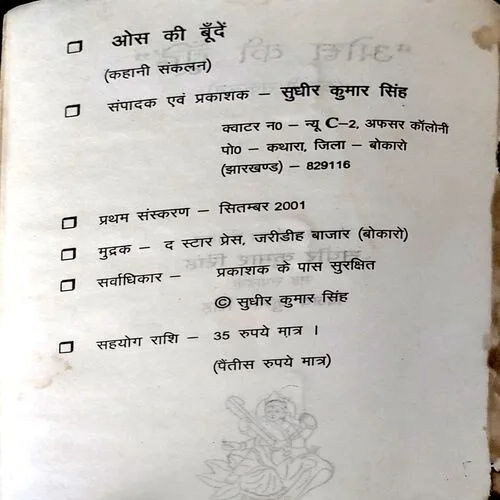 ओस की बूँदें
(कहानी संकलन)
संपादक एवं प्रकाशक – सुधीर कुमार सिंह
क्वाटर न0 – न्यू C–2, अफसर कॉलोनी
पो0 – कथारा, जिला – बोकारो
(झारखण्ड) – 829116
प्रथम संस्करण – सितम्बर 2001
मुद्रक – द स्टार प्रेस, जरीडीह बाजार (बोकारो)
सर्वाधिकार – प्रकाशक के पास सुरक्षित
© सुधीर कुमार सिंह
सहयोग राशि – 35 रुपये मात्र ।
(पैंतीस रुपये मात्र)